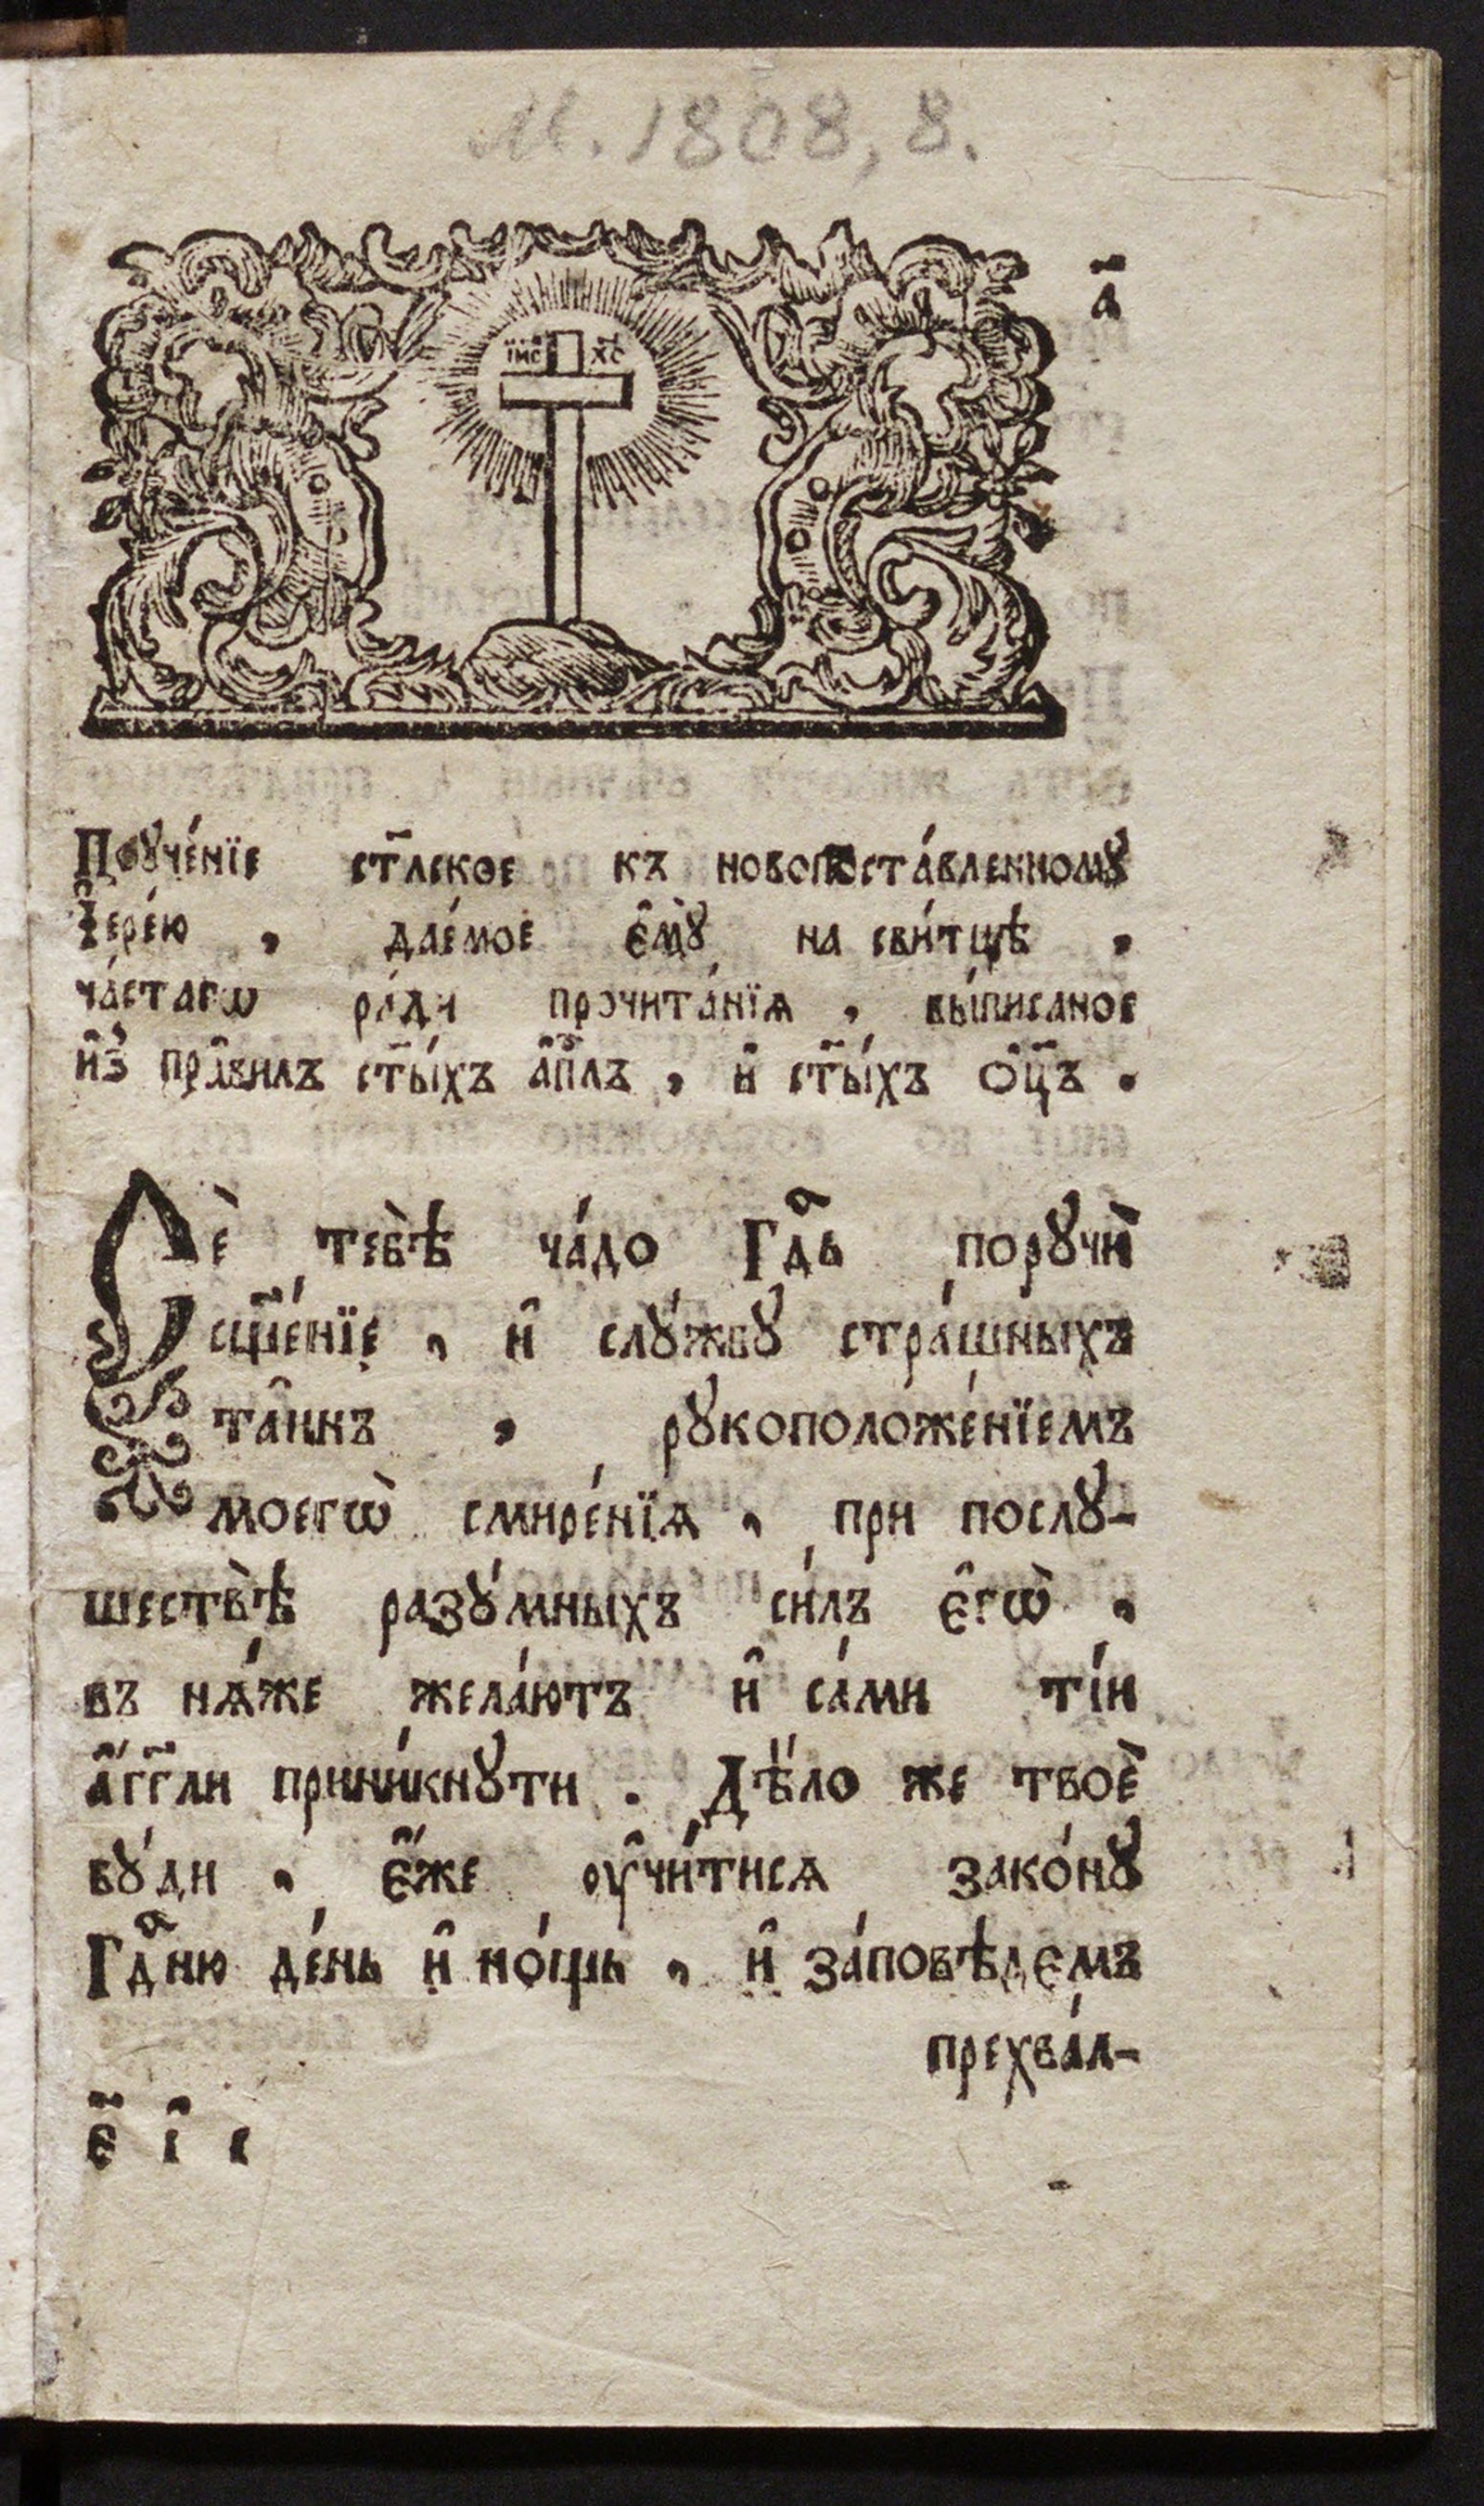 М. 1808, 8.
а҃
І҆ИС ХС
Поꙋче́нїе ст҃лское къ новопоста́вленномꙋ
і҆ере́ю , дае́мое є҆мꙋ̀ на сви́тцѣ ,
ча́стагѡ ра́ди прочита́нїѧ , вы́писаное
и҆з̾ пра́вилъ ст҃ы́хъ а҆п҃лъ , и҆ ст҃ы́хъ ѻ҆ц҃ъ .
Сѐ тебѣ̀ ча́до Гдⷭ҇ь порꙋчѝ
сщ҃е́нїе , и҆ слꙋ́жбꙋ стра́шныхъ
та̑инъ , рꙋкоположе́нїемъ
моегѡ̀ смире́нїѧ , при послꙋ-
шествѣ̀ разꙋ́мныхъ си́лъ є҆гѡ̀ ,
въ нѧ́же жела́ютъ и҆ са́ми ті́и
а҆́гг҃ли прини́кнꙋти . Дѣ́ло же твоѐ
бꙋ́ди , є҆́же ᲂу҆чи́тисѧ зако́нꙋ
Гдⷭ҇ню де́нь и҆ но́щь , и҆ за́повѣдемъ
прехва́л-
є҃ і҆ с